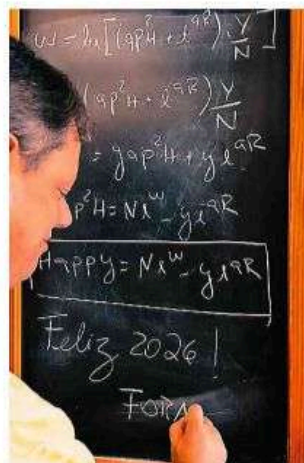 W = ln[(ap²H + e^aR) · y/N]
(ap²H + e^aR) y/N
= yap²H + ye^aR
p²H = Ne^w - ye^aR
Happy = Ne^w - ye^aR
Feliz 2026!
FORA